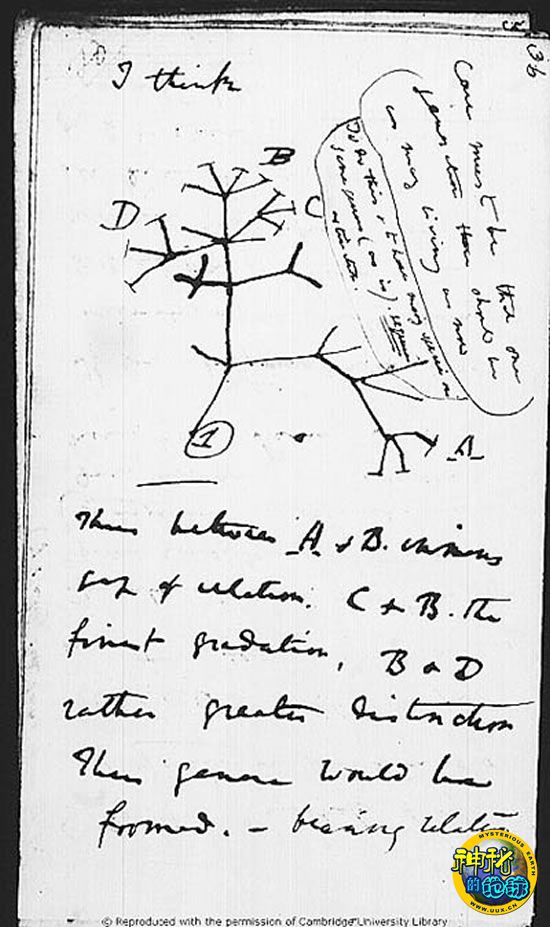 36
I think
Case must be that one
generation then should be
as many living as now
To do this & to have many species in
same genus (as is). requires
extinction.
B
D
C
A
1
Thus between A & B. immens
gap of relation. C & B. the
finest gradation, B & D
rather greater distinction
Thus genera would be
formed. — bearing relation
MYSTERIOUS EARTH
神秘
的地球
WWW.UUX.CN
© Reproduced with the permission of Cambridge University Library